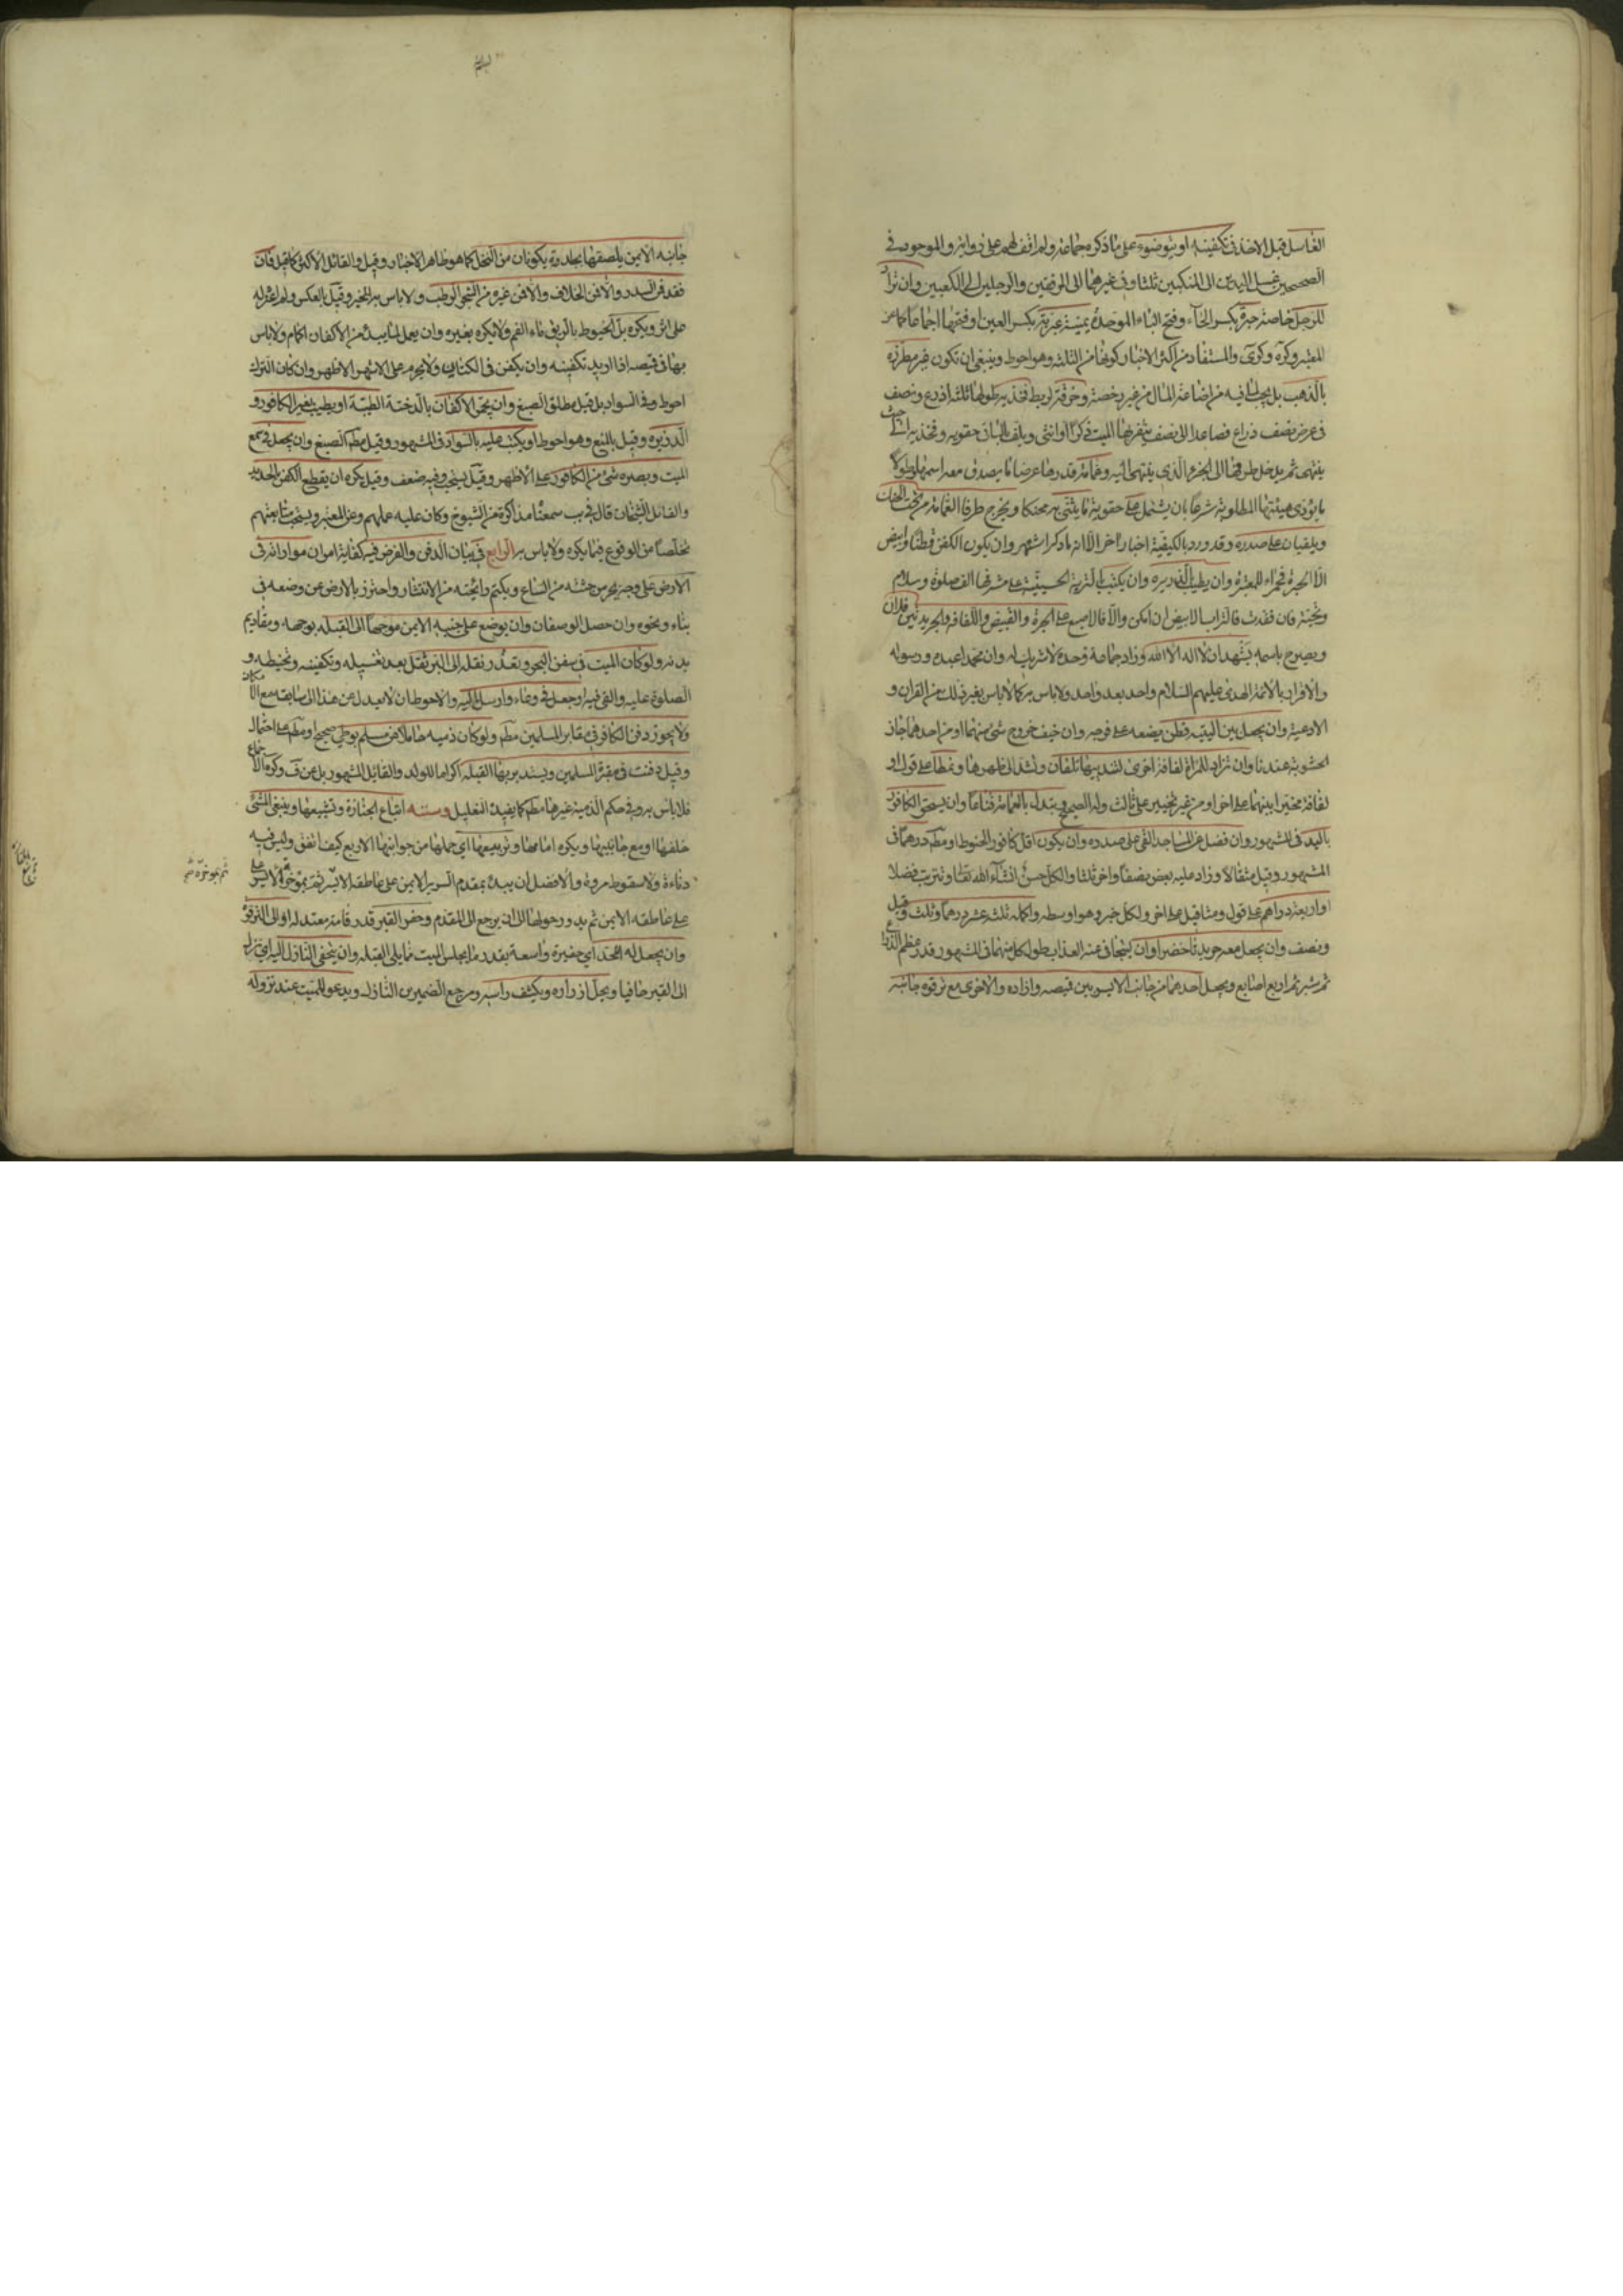 الغاسل قبل الاخذ في تكفينه او بوضوء على ما ذكره جماعة ولم اقف لهم على رواية والموجود في
الصحيحين غسل اليدين الى المنكبين ثلثا وفي غيرهما الى المرفقين والرجلين الى الكعبين وان تزاد
للرجل خاصة حبرة بكسر الحاء وفتح الباء الموحدة يمنية عبرية بكسر العين او فتحها اجماعا كما عن
المعتبر وكره وكرى والمستفاد من اكثر الاخبار كونها من الثلثة وهو احوط وينبغي ان تكون غير مطرزة
بالذهب بل يجب لما فيه من اضاعة المال من غير رخصة وخرقة لربط فخذيه طولها ثلثة اذرع ونصف
في عرض نصف ذراع فصاعدا الى نصف يثفر بها الميت ذكرا او انثى ويلف الباقي حقويه وفخذيه الى حيث
ينتهي ثم يدخل طرفها الى الجزء الذي ينتهي اليه وعمامة قدرها عرضا ما يصدق معه اسمها وطولا
ما يؤدي هيئتها المطلوبة شرعا بان يشتمل على حقوية ما يثنى به محنكا ويخرج طرفا العمامة من تحت الحنك
ويلقيان على صدره وقد ورد بالكيفية اخبار اخر الا ان ما ذكر اشهر وان يكون الكفن قطنا وابيض
الا الحبرة فحمراء للمعتبرة وان يطيب بالذريرة وان يكتب بالتربة الحسينية على مشرفها الف صلوة وسلام
وتحية فان فقدت فالتراب الابيض ان امكن والا فالاصبع على الحبرة والقميص واللفافة والجريدتين فلان
ويصرح باسمه يشهد ان لا اله الا الله وزاد جماعة وحده لا شريك له وان محمدا عبده ورسوله
والاقرار بالائمة الهدى عليهم السلام واحد بعد واحد ولا باس به كما لا باس بغير ذلك من القران و
الادعية وان يجعل بين اليتيه قطن يضعه على فرجه وان خيف خروج شئ منهما او من احدهما جاز
الحشو به عندنا وان تزاد للمراة لفافة اخرى لشد بها ثديان وتشد الى ظهرها ونمطا على قول او
لفافة مخيرا بينهما على اخر او من غير تخيير على ثالث وله الصحيح ويتبدل بالعمامة قناعا وان يسحق الكافور
باليد في المشهور وان فضل عن المساجد القي على صدره وان يكون اقل كافور الحنوط او مطم درهما في
المشهور وقيل مثقالا وزاد عليه بعض نصفا واخر ثلثا والكل حسن انشاء الله تعالى وتترتب فضلا
او اربعة دراهم على قول ومثاقيل على اخر ولكل خبر وهو اوسطه واكمله ثلثة عشر درهما وثلث وقيل
ونصف وان يجعل معه جريدتا خضراوان كيتجافى عنه العذاب طول كل منهما في المشهور قدر عظم الذراع
ثم شبر ثم اربع اصابع ويجعل احدهما من جانبه الايسر بين قميصه وازاره والاخرى مع ترقوة جانبه
جانبه الايمن يلصقها بجلده ويكونان من النخل كما هو ظاهر الاخبار وقيل والقائل الاكثر كما قيل فان
فقد فمن السدر والا فمن الخلاف والا فمن غيره من الشجر الرطب ولا باس به للخبر وقيل بالعكس ولم اعثر له
على اثر ويكره بل الخيوط بالريق ماء الفم ولا يكره بغيره وان يعمل لما يبتدء من الاكفان اكمام ولا باس
بها في قميصه اذا اريد تكفينه وان يكفن في الكتان ولا يحرم على الاشهر الاظهر وان كان الترك
احوط وفي السواد بل قيل مطلق الصبغ وان يجمر الاكفان بالدخنة الطيبة او يطيب بغير الكافور و
الذريرة وقيل بالمنع وهو احوط او يكتب عليه بالسواد في المشهور وقيل مطم الصبغ وان يجعل في سمع
الميت وبصره شئ من الكافور على الاظهر وقيل يستحب وفيه ضعف وقيل يكره ان يقطع الكفن بالحديد
والقائل الشيخان قال في يب سمعنا مذاكرة من الشيوخ وكان عليه عملهم وعن المعتبر ويستحب متابعتهم
تخلصا من الوقوع فيما يكره ولا باس به الرابع في بيان الدفن والفرض فيه كفاية امران مواراته في
الارض على وجه يحرس جثته من السباع ويكتم رائحته من الانتشار واحترز بالارض عن وضعه في
بناء ونحوه وان حصل الوصفان وان يوضع على جنبه الايمن موجها الى القبلة بوجهه ومقاديم
بدنه ولو كان الميت في سفن البحر وتعذر نقله الى البر ثقل بعد تغسيله وتكفينه وتحنيطه و
الصلوة عليه والقي فيه او جعل في وعاء وارسل اليه والاحوط ان لا يعدل عن هذا الى سابقه مع الامكان
ولا يجوز دفن الكافر في مقابر المسلمين مطم ولو كان ذمية حاملا من مسلم بوطي صحيح او مطم على احتمال
وقيل دفنت في مقبرة المسلمين ويستدبر بها القبلة اكراما للولد والقائل المشهور بل عن ف وكره الاجماع
فلا باس به وفي حكم الذمية غيرها مطم كما يفيده التعليل وسننه اتباع الجنازة وتشييعها وينبغي المشي
خلفها او مع جانبيها ويكره امامها وتربيعها اي حملها من جوانبها الاربع كيف اتفق وليس فيه
دناءة ولا سقوط مروة والافضل ان يبدء بمقدم السرير الايمن على عاطقه الايسر ثم بمؤخره الايسر على
على عاطقه الايمن ثم يدور حولها الى ان يرجع الى المقدم وحفر القبر قدر قامة معتدلة او الى الترقوة
وان يجعل له لحد اي حفيرة واسعة بقدر ما يجلس الميت مما يلي القبلة وان يتحفى النازل اليه اي ينزل
الى القبر حافيا ويحل ازراره ويكشف راسه ومرجع الضميرين النازل ويدعو للميت عند نزوله